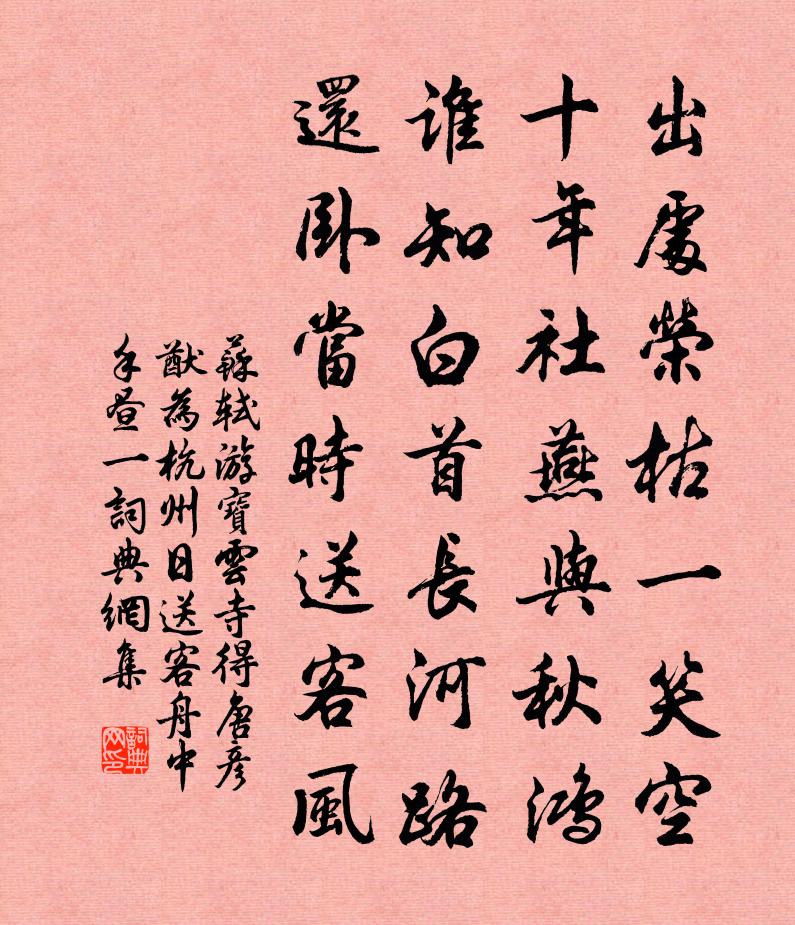 出處榮枯一笑空
十年社燕與秋鴻
誰知白首長河路
還卧當時送客風
蘇軾游寶雲寺得唐彥
猷為杭州日送客舟中
手晝一詞典網集
詞典
网印